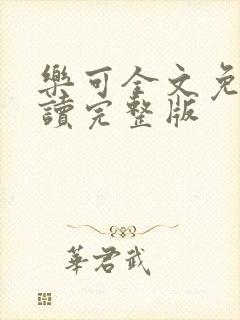 樂可全文免
讀完整版
華君武